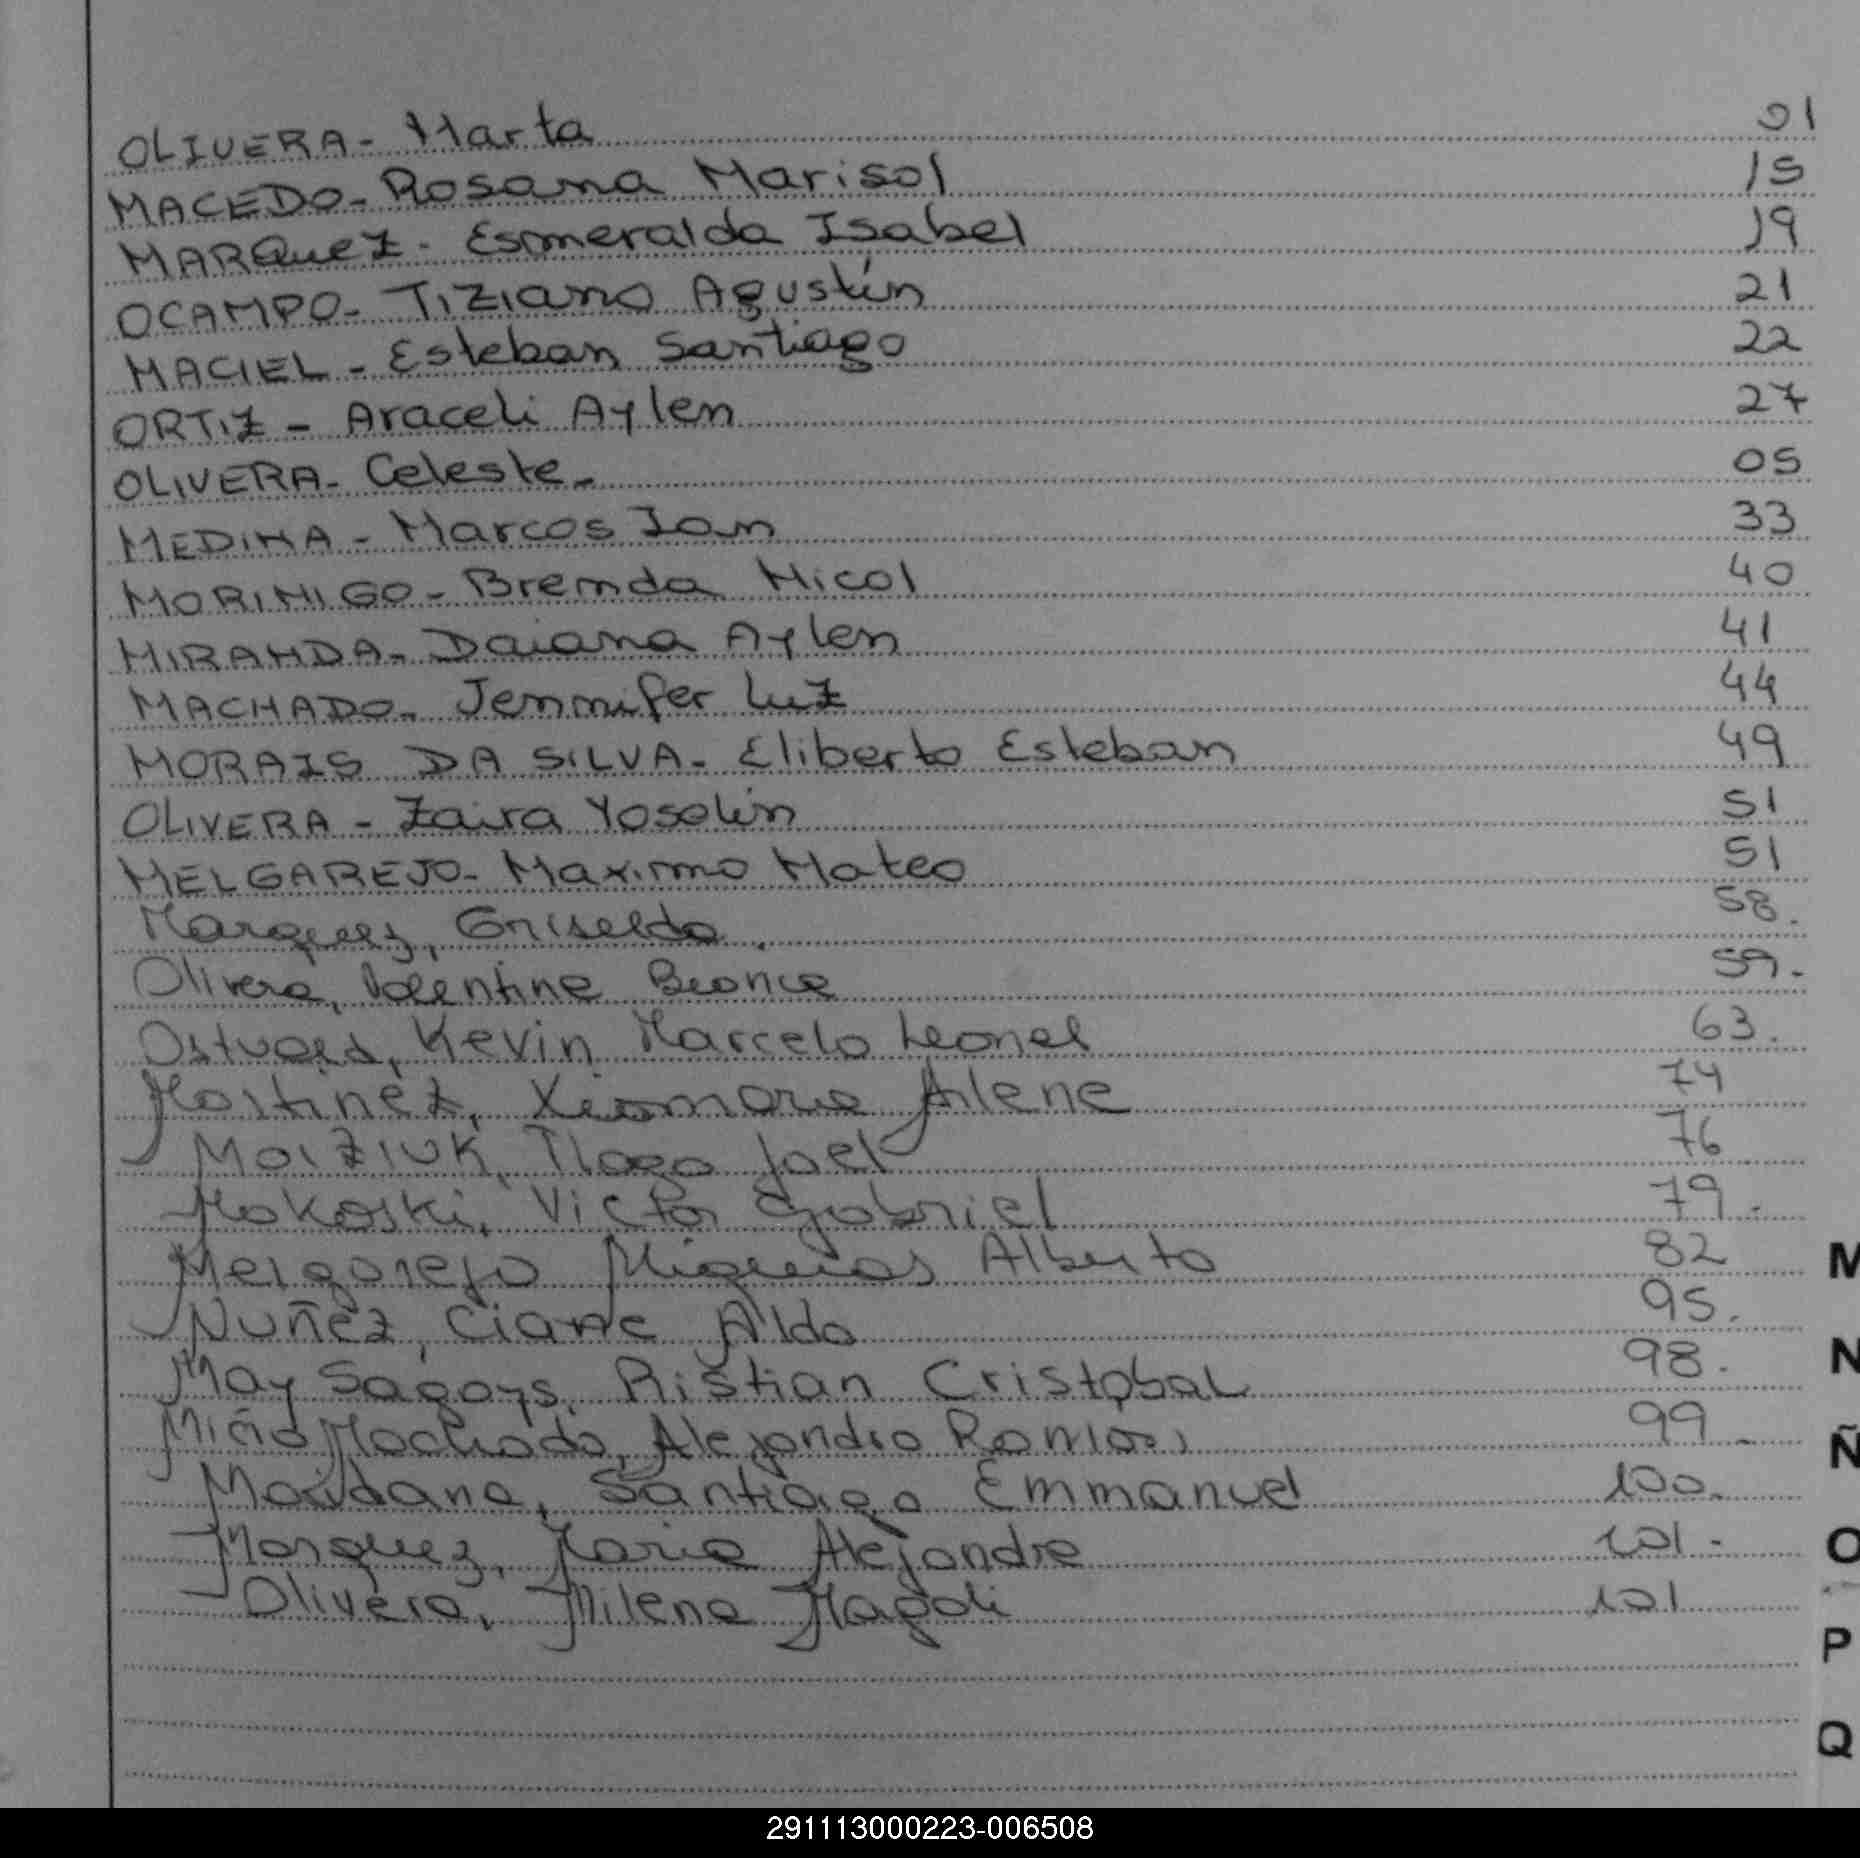 OLIVERA - Marta 01
MACEDO - Rosana Marisol 15
MARQuEZ - Esmeralda Isabel 19
OCAMPO - Tiziano Agustín 21
MACIEL - Esteban Santiago 22
ORTIZ - Araceli Aylen 27
OLIVERA - Celeste - 05
MEDINA - Marcos Ian 33
MORINIGO - Brenda Nicol 40
MIRANDA - Daiana Aylen 41
MACHADO - Jennifer Luz 44
MORAIS DA SILVA - Eliberto Esteban 49
OLIVERA - Zaira Yoselín 51
MELGAREJO - Maximo Mateo 51
Marquez, Griselda. 58.
Olivera, Valentina Bianca 59.
Kevin Marcelo Leonel 63.
Martinez, Xiomara Ailene 74
Tiago Joel 76
Mokoski, Victor Gabriel 79.
Melgarejo Miqueias Alberto 82
Nuñez, Ciane Aldo 95.
May Sagoys, Ristian Cristobal 98.
Miño Machado, Alejandro Ramon, 99.
Maidana, Santiago Emmanuel 100.
Marquez, Maria Alejandra 101.
Olivera, Milena Magali 101
M
N
Ñ
O
P
Q
291113000223-006508